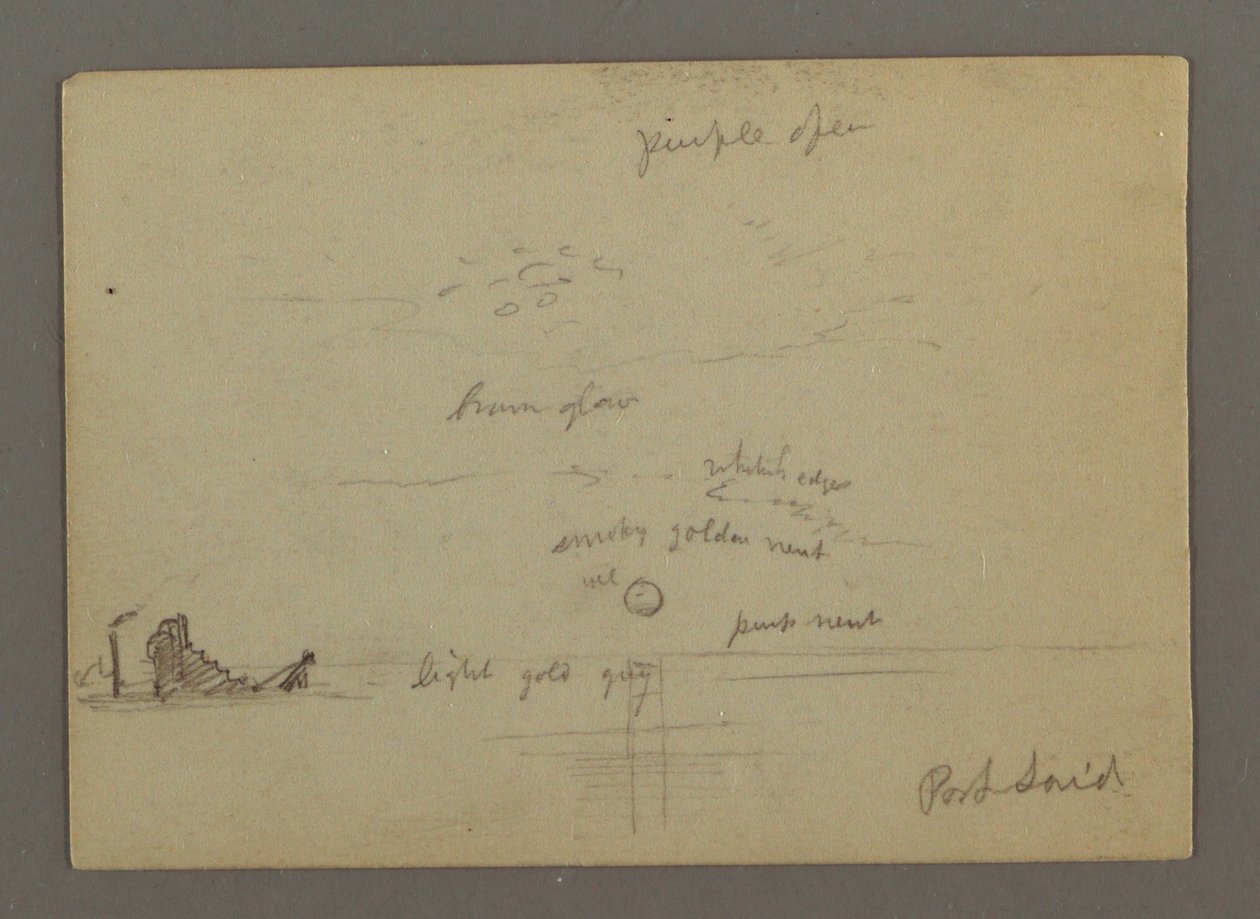 purple open
brown glow
whitish edges
smoky golden
pink
light gold grey
Port Said